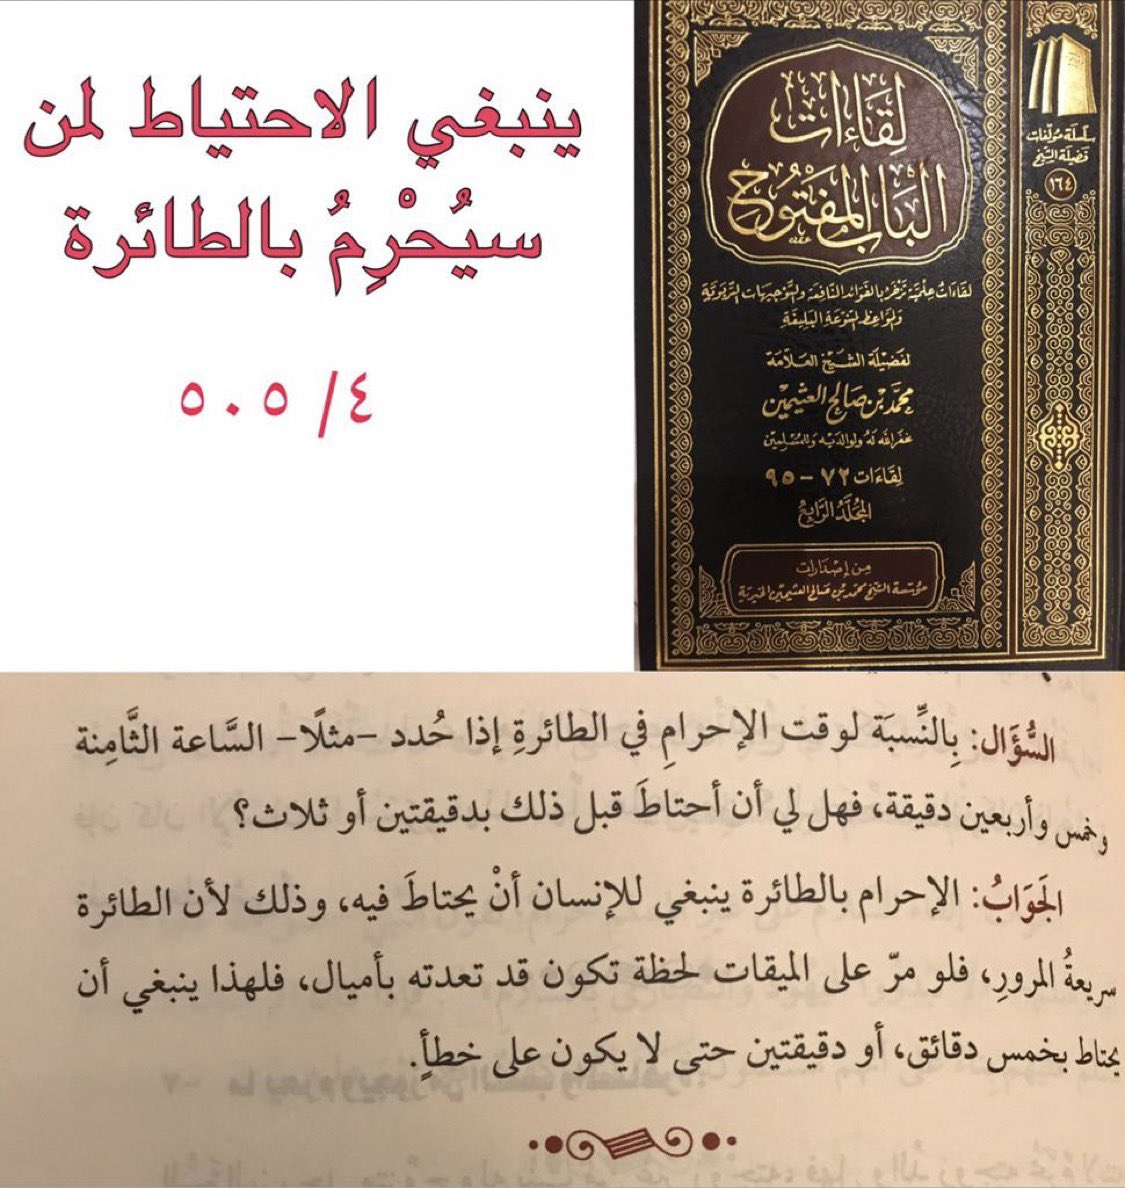 ينبغي الاحتياط لمن
سيُحْرِمُ بالطائرة
٤/ ٥٠٥
لِقَاءَات
البَابِ المَفْتُوحِ
لقاءات علمية تزخر بالفوائد النافعة والتوجيهات التربوية
والمواعظ المتنوعة البليغة
لفضيلة الشيخ العلامة
محمد بن صالح العثيمين
غفر الله له ولوالديه وللمسلمين
لقاءات ٧٢ - ٩٥
المجلد الرابع
من إصدارات
مؤسسة الشيخ محمد بن صالح العثيمين الخيرية
سلسلة مؤلفات
فضيلة الشيخ
١٦٤
السُّؤَال: بِالنِّسبَة لوقت الإحرامِ في الطائرةِ إذا حُدد -مثلًا- السَّاعة الثَّامِنة
وخمس وأربعين دقيقة، فهل لي أن أحتاطَ قبل ذلك بدقيقتين أو ثلاث؟
الجَوَابُ: الإحرام بالطائرة ينبغي للإنسان أنْ يحتاطَ فيه، وذلك لأن الطائرة
سريعةُ المرورِ، فلو مرّ على الميقات لحظة تكون قد تعدته بأميال، فلهذا ينبغي أن
يحتاط بخمس دقائق، أو دقيقتين حتى لا يكون على خطأٍ.